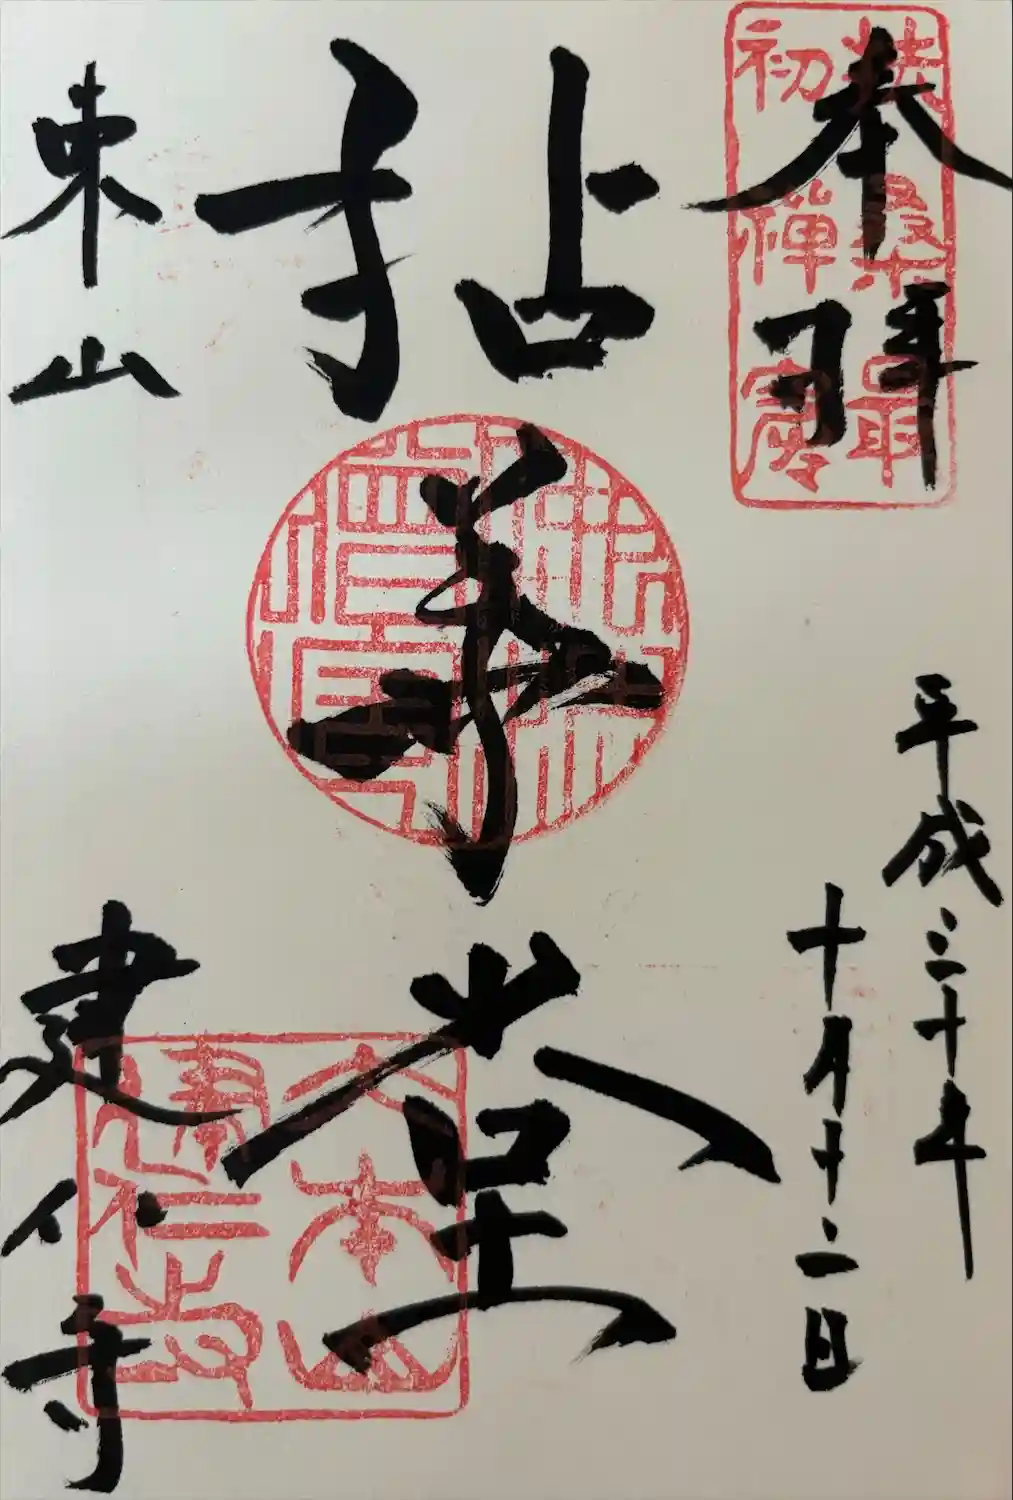 奉拝
扶桑最
初禅窟
平成三十年
十月十二日
拈華堂
東山
建仁寺
大本山
建仁寺